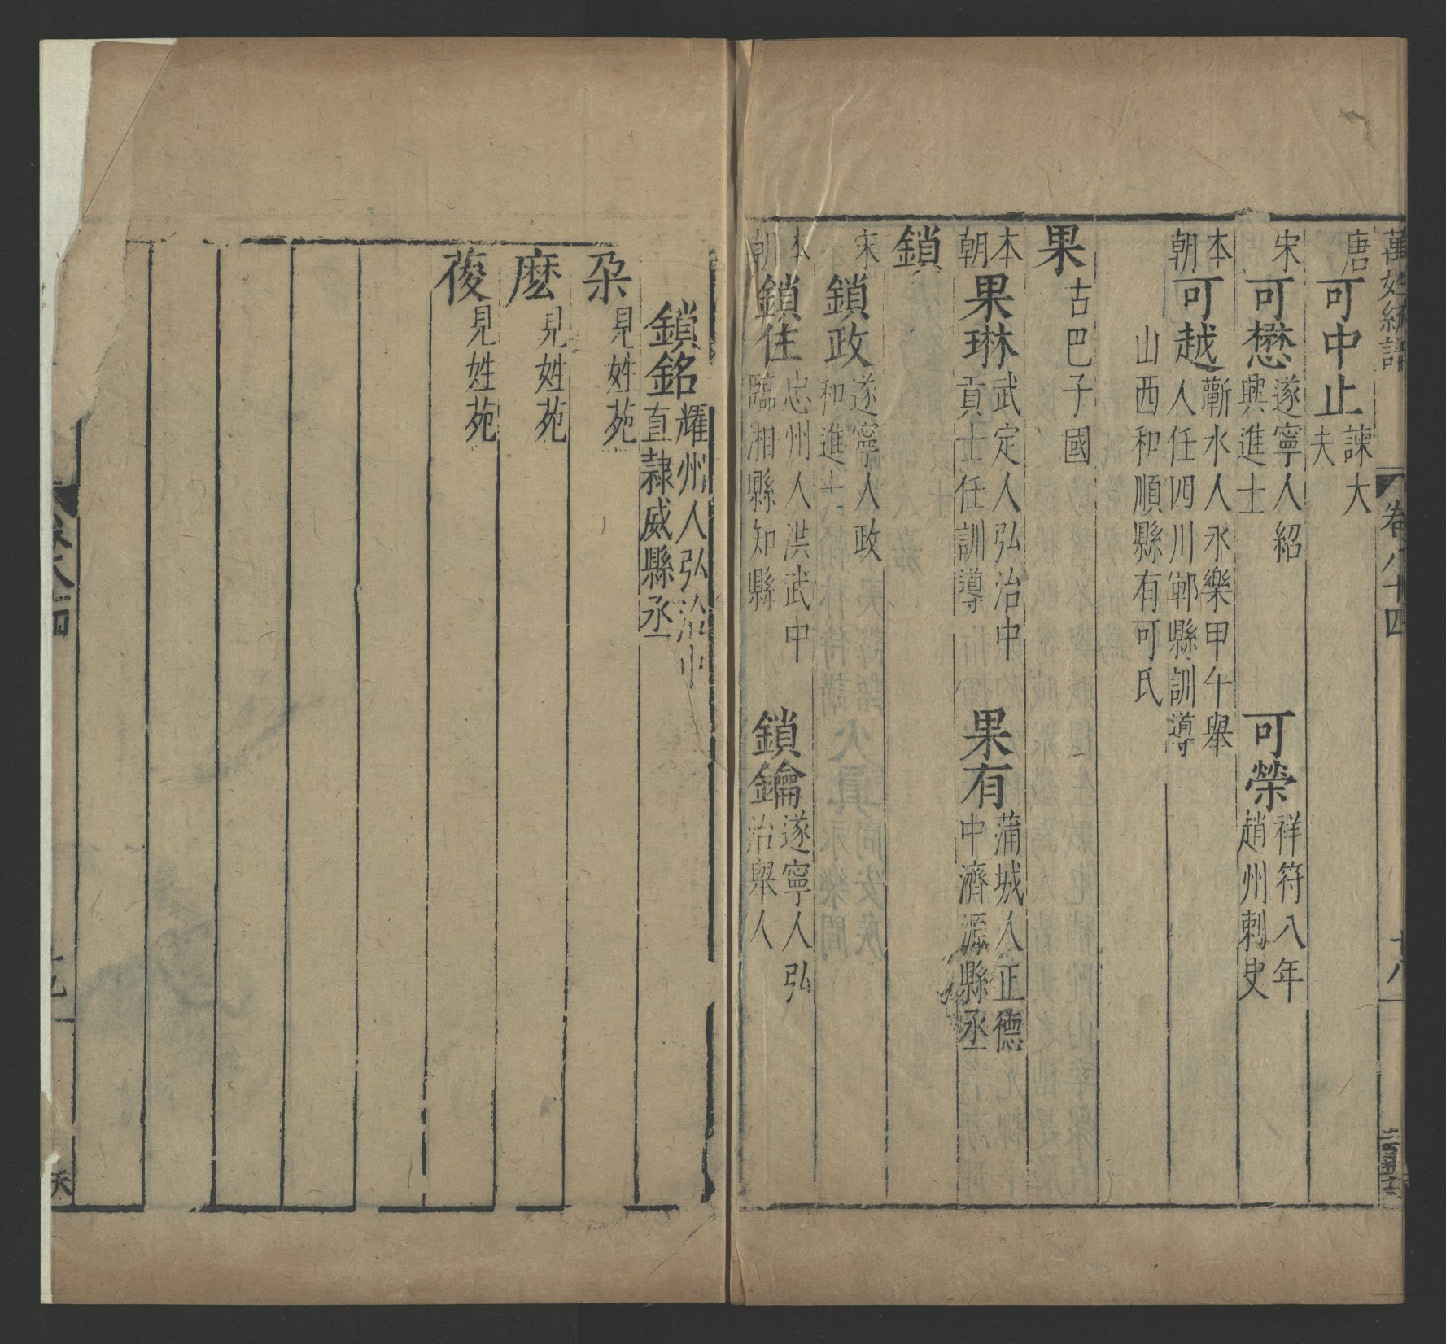 萬姓統譜
卷八十四
十八
唐
可中止諫大夫
宋
可懋遂寧人紹興進士
可榮祥符八年趙州刺史
本朝
可越蘄水人永樂甲午舉人任四川郫縣訓導
山西和順縣有可氏
果
古巴子國
本朝
果琳武定人弘治中貢士任訓導
果有蒲城人正德中濟源縣丞
鎖
宋
鎖政遂寧人政和進士
本朝
鎖住忠州人洪武中臨湘縣知縣
鎖鑰遂寧人弘治舉人
鎖銘耀州人弘治中直隷威縣丞
朶
見姓苑
麽
見姓苑
㛗
見姓苑
卷八十四
十九